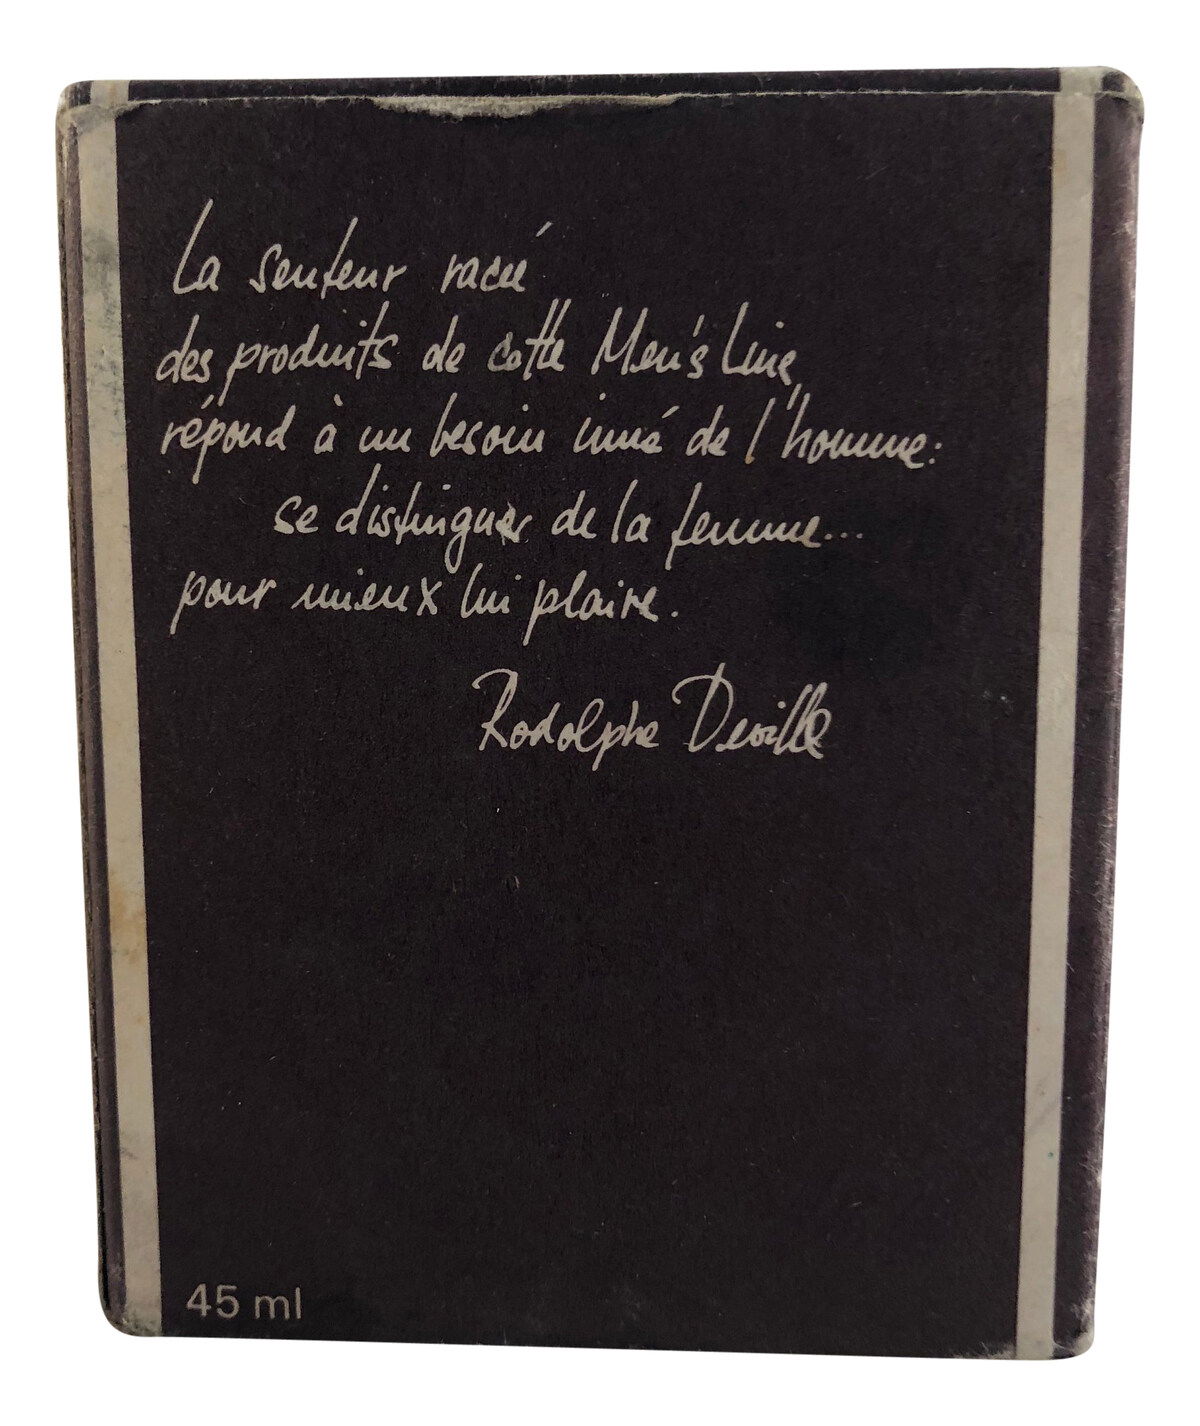 La senteur racée
des produits de cette Men's Line,
répond à un besoin inné de l'homme:
se distinguer de la femme...
pour mieux lui plaire.
Rodolphe Deville
45 ml